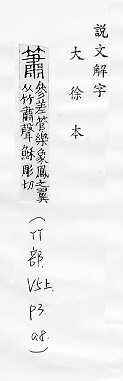 說文解字
大徐本
簫參差管樂象鳳之翼
从竹肅聲 穌彫切
(竹部. V5上. P3. a8.)